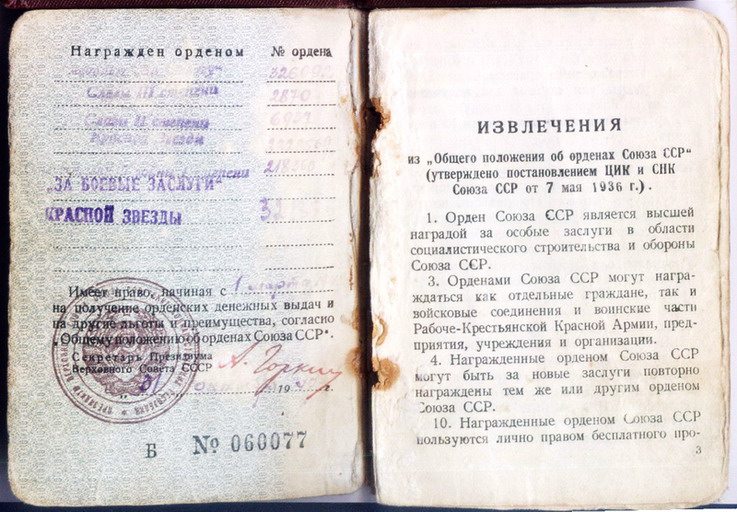 Награжден орденом № ордена
Славы III степени
Славы II степени
„ЗА БОЕВЫЕ ЗАСЛУГИ“
КРАСНОЙ ЗВЕЗДЫ
Имеет право, начиная с 1 марта
на получение орденских денежных выдач и
на другие льготы и преимущества, согласно
„Общему положению об орденах Союза ССР“.
Секретарь Президиума
Верховного Совета СССР А. Горкин
194 г.
Б № 060077
ИЗВЛЕЧЕНИЯ
из „Общего положения об орденах Союза ССР“
(утверждено постановлением ЦИК и СНК
Союза ССР от 7 мая 1936 г.).
1. Орден Союза ССР является высшей
наградой за особые заслуги в области
социалистического строительства и обороны
Союза ССР.
3. Орденами Союза ССР могут награ-
ждаться как отдельные граждане, так и
войсковые соединения и воинские части
Рабоче-Крестьянской Красной Армии, пред-
приятия, учреждения и организации.
4. Награжденные орденом Союза ССР
могут быть за новые заслуги повторно
награждены тем же или другим орденом
Союза ССР.
10. Награжденные орденом Союза ССР
пользуются лично правом бесплатного про-
3